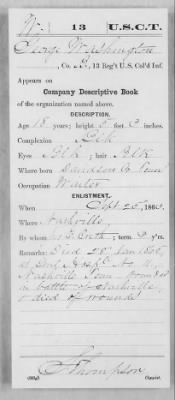 W 13 U.S.C.T.
George Washington
, Co. , 13 Reg't U.S. Col'd Inf.
Appears on
Company Descriptive Book
of the organization named above.
DESCRIPTION.
Age 18 years; height 5 feet inches.
Complexion Blk
Eyes Blk ; hair Blk
Where born Davidson Co Tenn
Occupation Waiter
ENLISTMENT.
When Sept 25, 1863
Where Nashville
By whom ; term 3 y'rs.
Remarks: Died 28 Jan 1865,
at Genl Hospl No 11
Nashville Tenn from
in battle of Nashville,
& died of wounds
Thompson
Copyist.